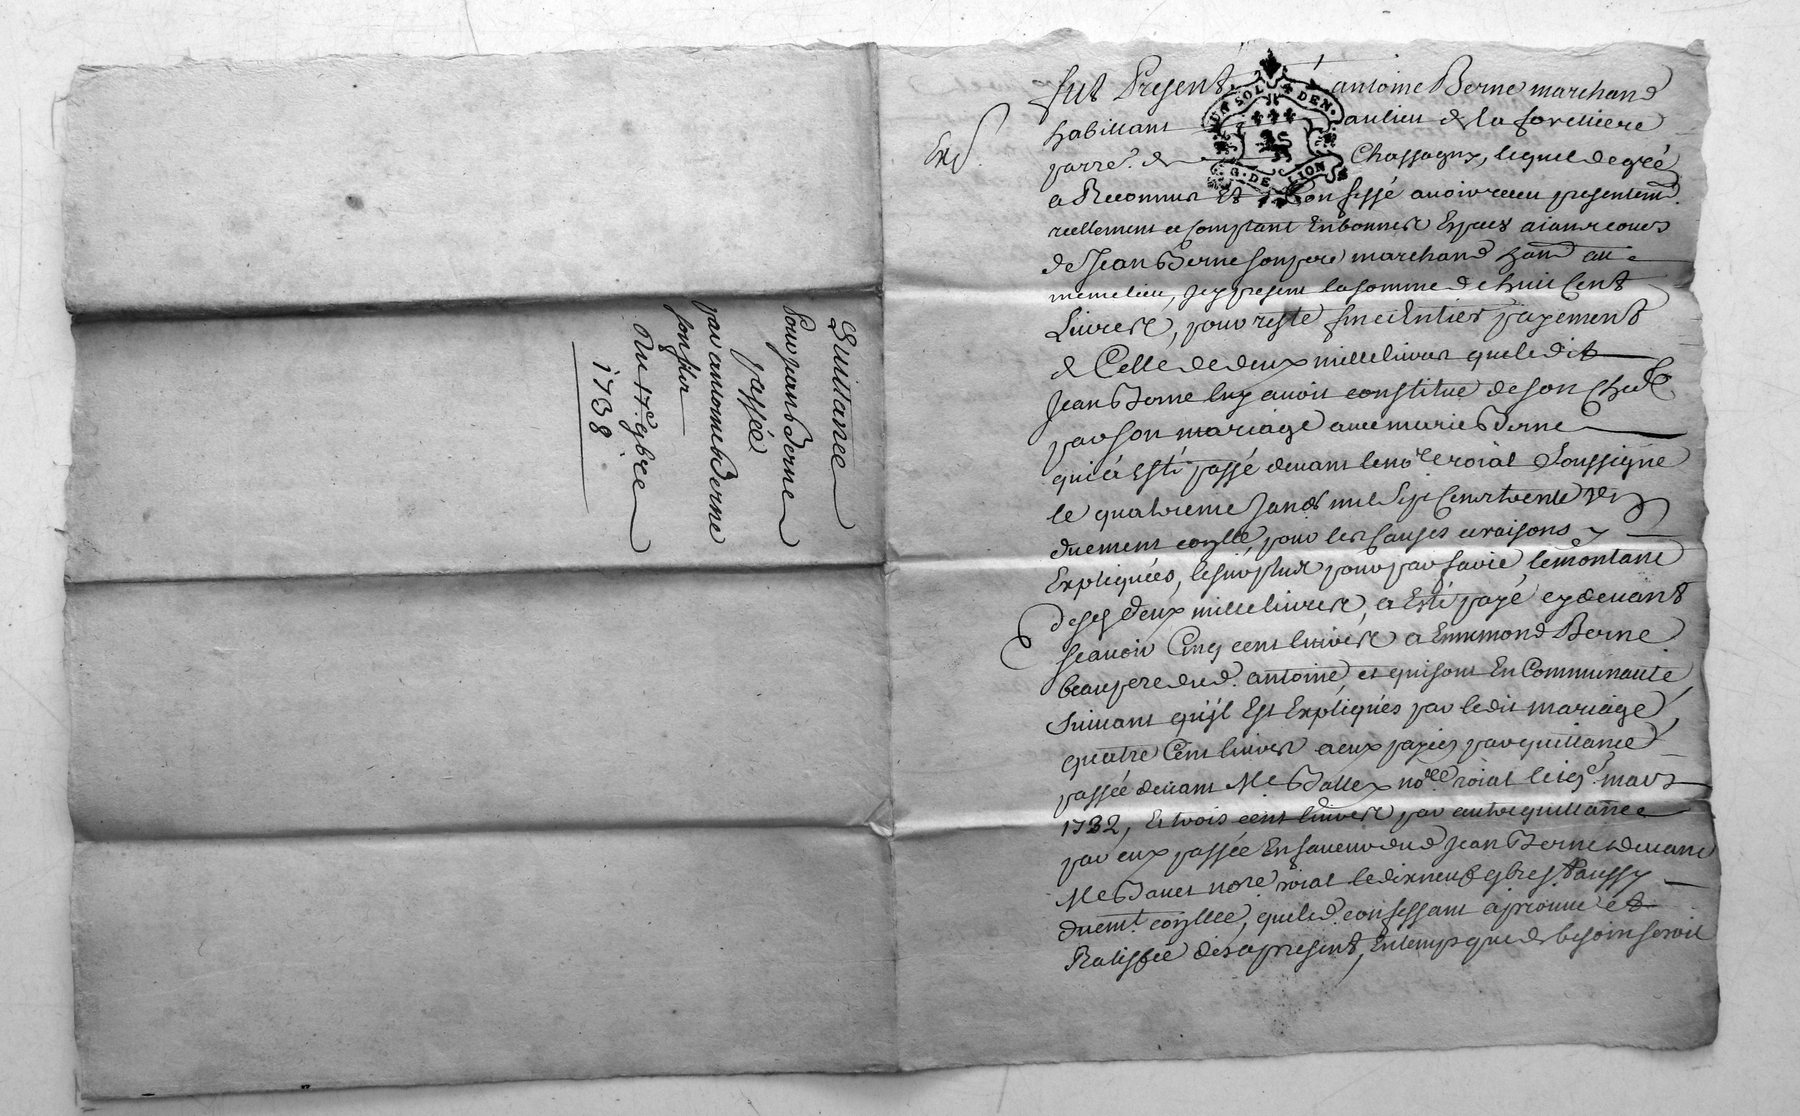 Quittance
Pour jean Berne
passée
par antoine Berne
son fils
Du 17e 9bre
1738
Exp.
UN SOL 4 DEN.
G. DE LION
fut Present antoine Berne marchand
habittant au lieu de la forettiere
parre. de Chassagny, lequel de gré
a Reconnu Et Confessé avoir receu presentemt.
reellement et comptant En bonnes Especes aiant cours
de Jean Berne son pere marchand hant. au
meme lieu, jcy present la somme de huit Cent
Livres, pour reste fin et Entier payement
de Celle de deux mille livres que ledit
Jean Berne luy avoit constitué de son Chef
par son mariage avec marie Berne
qui a Esté passé devant le nore. roial Soussigné
le quatrieme janvr mil Sept Cent trente
duement conllé, pour les Causes et raisons y
Expliquées, le surplus pour parfaire le montant
desd. deux mille livres, a Esté payé cy devant
Scavoir Cinq cent livres a Ennemond Berne
beaupere dud. antoine et qui sont En Communauté
Suivant qu'jl Est Expliqués par ledit mariage,
quatre Cent livres a eux payés par quittance
passée devant Me nore. roial le mars
1732, Et trois cent livres par autre quittance
par eux passée En faveur dud Jean Berne devant
Me nore roial le dix neuf 9bre aussy
duemt. conllée, que led. confessant approuve et
Ratiffie des apresent, En temps que de besoin seroit